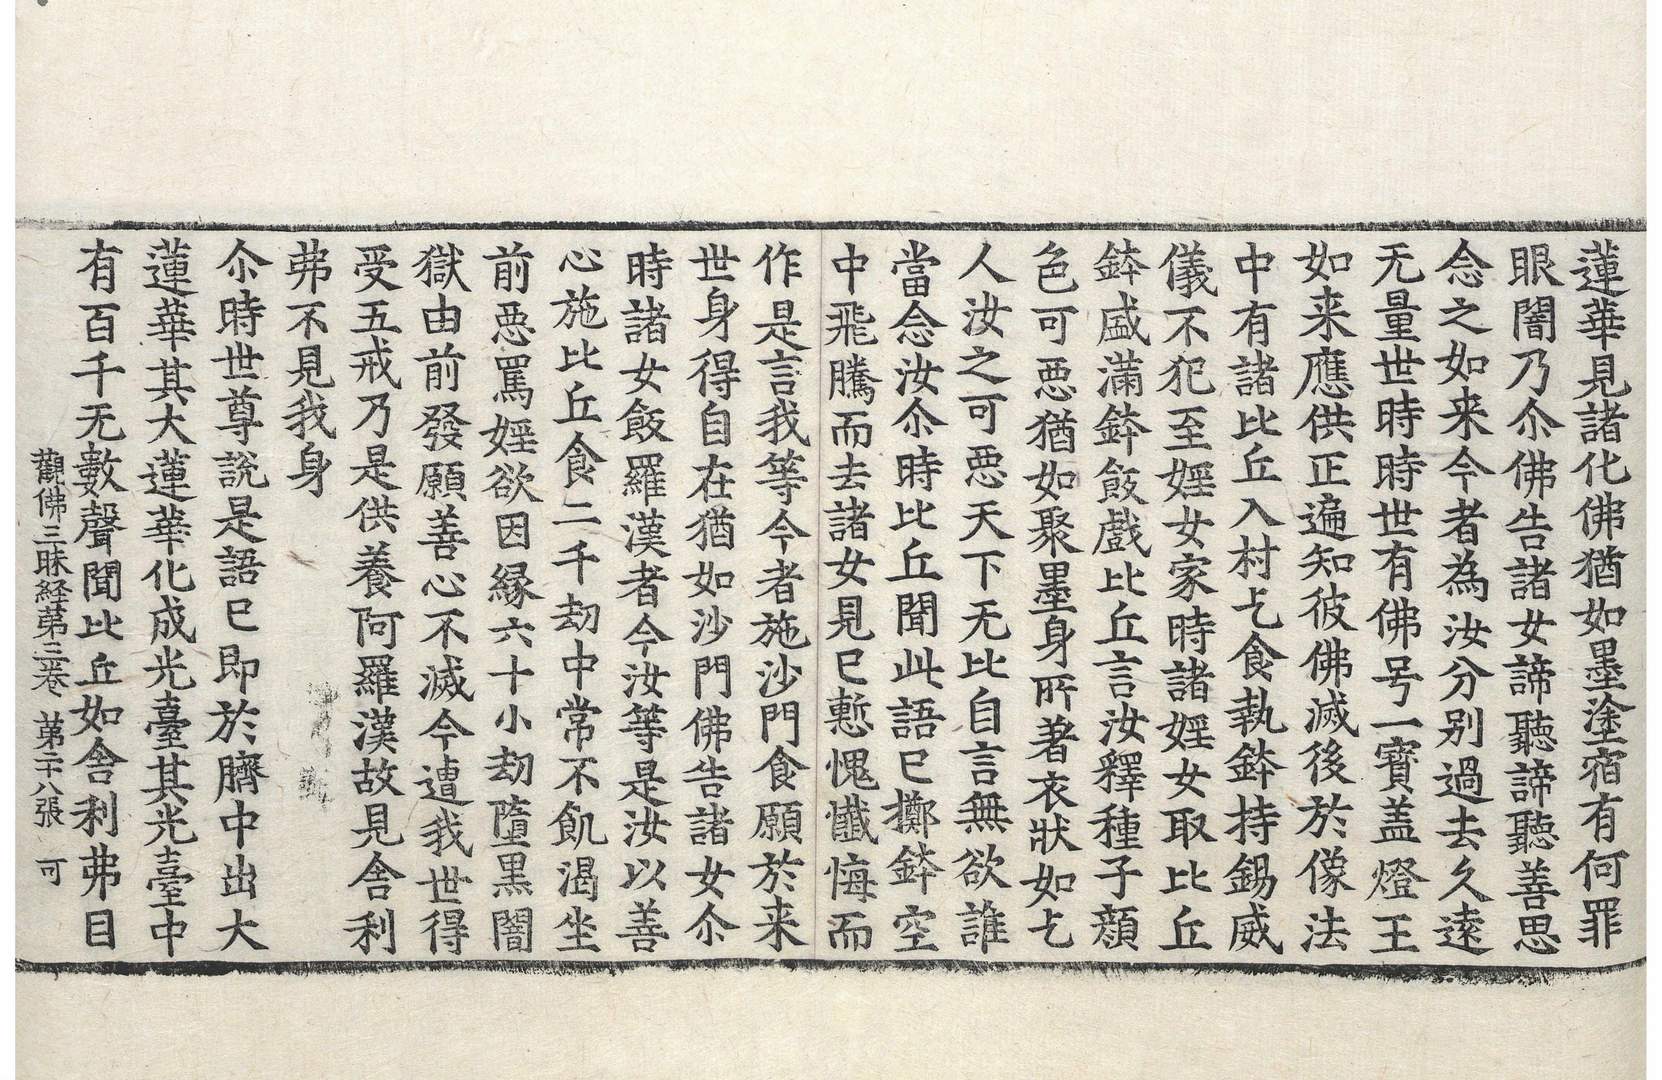 蓮華見諸化佛猶如墨塗宿有何罪
眼闇乃尒佛告諸女諦聽諦聽善思
念之如来今者為汝分別過去久遠
无量世時時世有佛号一寶盖燈王
如来應供正遍知彼佛滅後於像法
中有諸比丘入村乞食執鉢持錫威
儀不犯至婬女家時諸婬女取比丘
鉢盛滿鉢飯戲比丘言汝釋種子顔
色可惡猶如聚墨身所著衣狀如乞
人汝之可惡天下无比自言無欲誰
當念汝尒時比丘聞此語已擲鉢空
中飛騰而去諸女見已慙愧懺悔而
作是言我等今者施沙門食願於来
世身得自在猶如沙門佛告諸女尒
時諸女飯羅漢者今汝等是汝以善
心施比丘食二千劫中常不飢渴坐
前惡罵婬欲因縁六十小劫墮黒闇
獄由前發願善心不滅今遭我世得
受五戒乃是供養阿羅漢故見舍利
弗不見我身
尒時世尊說是語已即於臍中出大
蓮華其大蓮華化成光臺其光臺中
有百千无數聲聞比丘如舍利弗目
觀佛三昧経第三卷 第二十八張 可